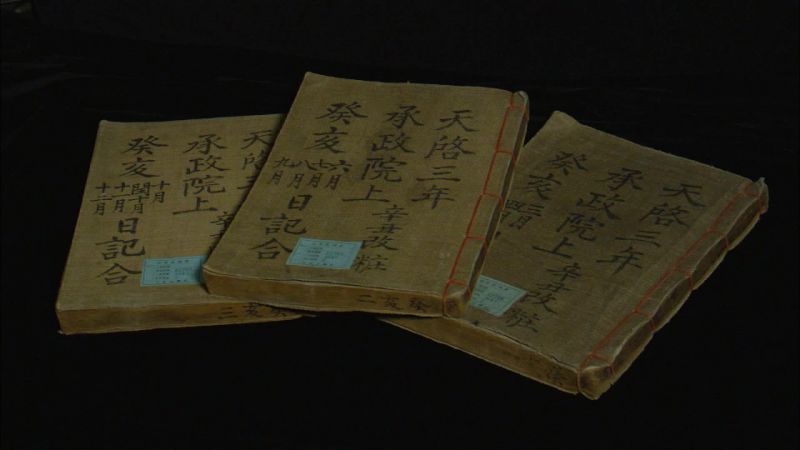 天啓
承政院上
辛
癸亥
十月
閏十月
十一月
十二月
日記合
癸亥三
天啓三年
承政院上
辛丑改粧
癸亥
六月
七月
八月
九月
日記合
癸亥二
天啓三年
承政院上
辛丑改粧
癸亥